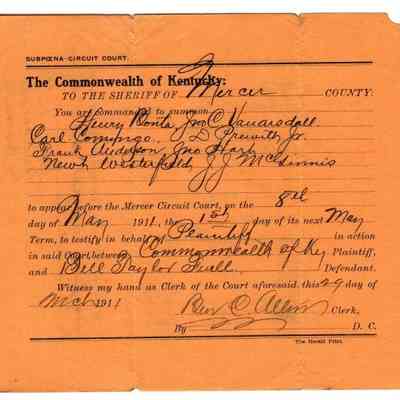 SUBPŒNA-CIRCUIT COURT.
The Commonwealth of Kentucky:
TO THE SHERIFF OF Mercer COUNTY:
You are commanded to summon
Henry Bonta, Jno C Vanarsdall
Carl Comingo. D L Prewitt Jr.
Frank Anderson, Jno Hart
Newt Westerfield J J McGinnis
to appear before the Mercer Circuit Court, on the 8th
day of May 1911, the 1st day of its next May
Term, to testify in behalf of Plaintiff in action
in said Court between Commonwealth of Ky Plaintiff,
and Bill Taylor Defendant.
Witness my hand as Clerk of the Court aforesaid, this 29 day of
Mch 1911 Ben C. Allin Clerk,
By D. C.
The Herald Print.